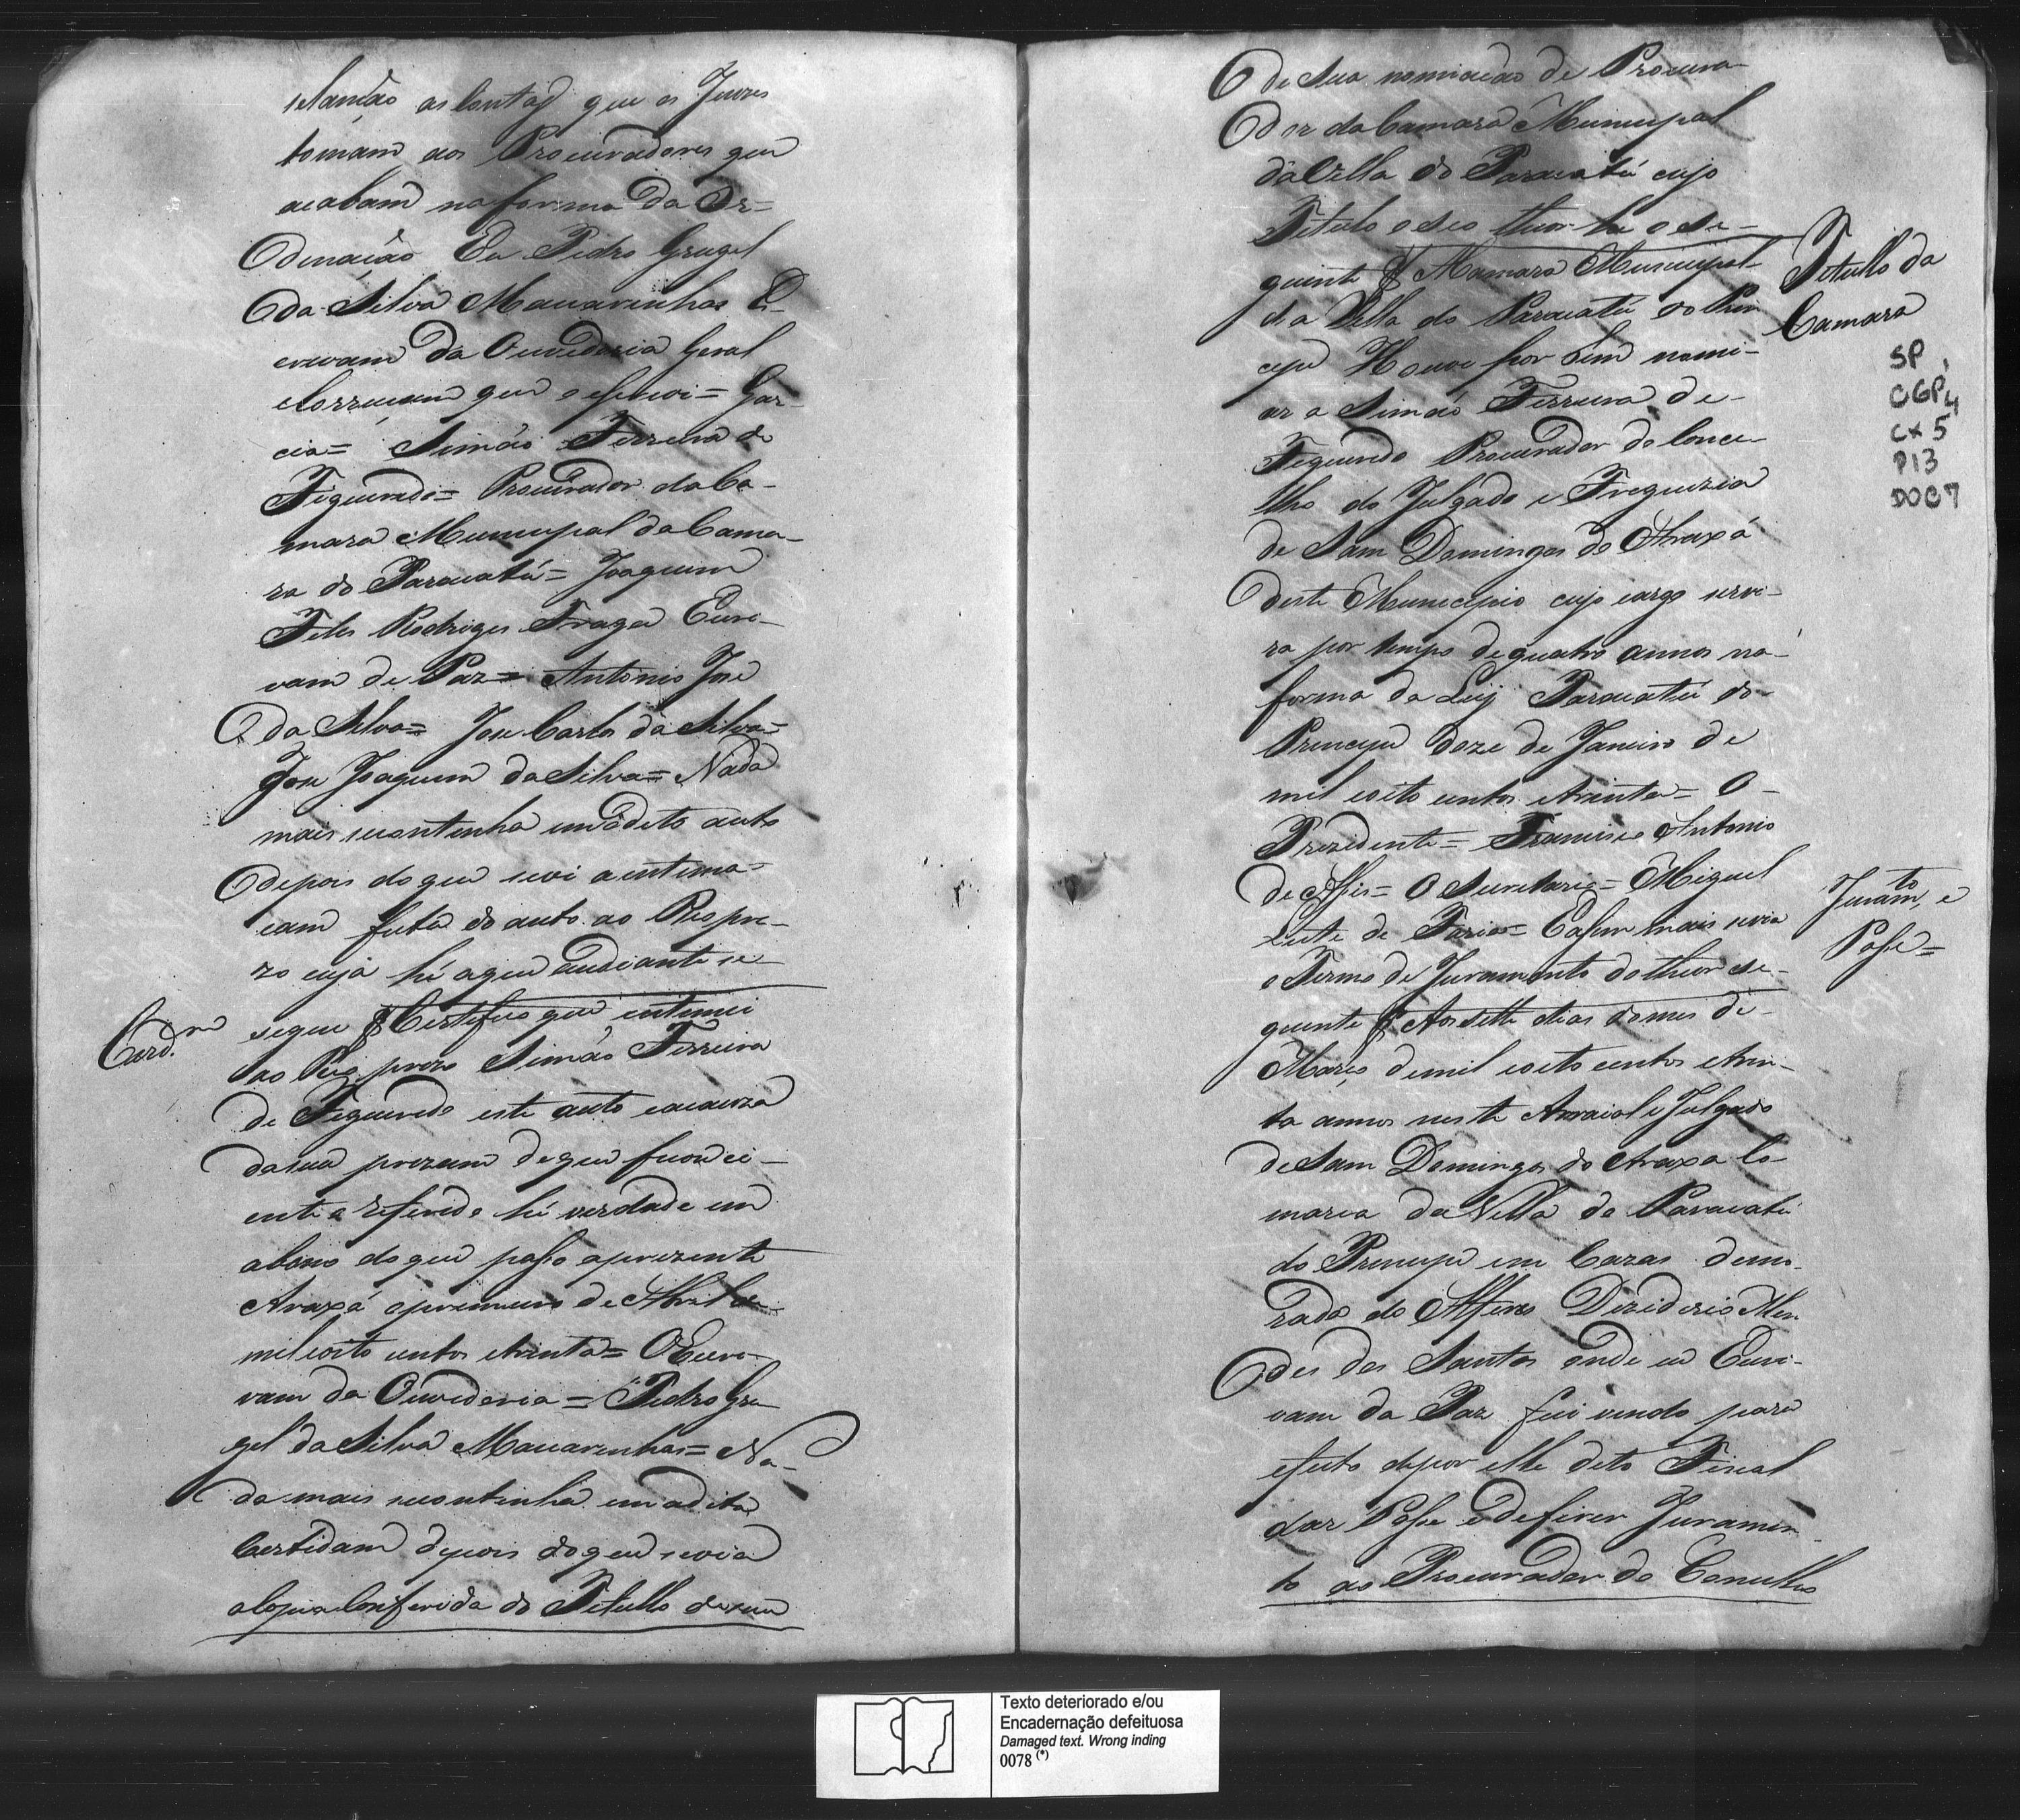 as Contas que os Juizes
tomam aos Procuradores que
acabam na forma da Or=
denação Eu Pedro Grugel
da Silva Mascarinhas Es-
crivam da Ouvedoria Geral
e Correicam que o escrevi = Gar-
cia = Simão Ferreira de
Figueiredo = Procurador da Ca-
mara Municipal da Cama-
ra do Paracatú = Joaquim
Teles Rodrigues Fraga Escri-
vam de Paz = Antonio José
da Silva = Jose Carlos da Silva =
Jose Joaquim da Silva = Nada
mais secontinha em o dito auto
depois do que se vi a intima-
cam feita do auto ao Reo pre-
zo cuja hé a que audiante se
Certd.am
segue Certefico que intimei
ao Reo prezo Simão Ferreira
de Figueiredo este auto e a cauza
da sua prizam de que ficou ci-
ente o referido hé verdade em
abono do que paſso a prezente
Araxá o primeiro de Abril de
mil oito centos e trinta = O Escri-
vam da Ouvedoria = Pedro Gru-
gel da Silva Mascarinhas = Na-
da mais secontinha em a dita
Certidam depois do que se via
a Copia Conferida do Titullo de sua
de sua nomiacão de Procura-
dor da Camara Municipal
da Villa do Paracatú cujo
Titulo o seo theor he o se-
guinte A Camara Municipal
Titullo da
Camara
da Villa do Paracatú do Prin
cipe Houve por bem nomi-
ar a Simão Ferreira de
Figueiredo Procurador do Conce-
lho do Julgado e Freguezia
de Sam Domingos do Araxá
deste Municipio cujo cargo servi-
ra por tempo de quatro annos na
forma da Ley Paracatú do
Principe doze de Janeiro de
mil oito centos e trinta = O
Prezidente = Francisco Antonio
de Aſsis = O Secretario = Miguel
Leite de Faria = Easim mais se via
o Termo de Juramento do theor se-
Juram.to, e
Poſse =
guinte Aos sette dias do mes de
Março de mil oito centos e trin-
ta annos neste Arraial e Julgado
de Sam Domingos do Araxa Co-
marca da Villa de Paracatú
do Principe em Cazas de mo-
rada do Alferes Deziderio Men
des dos Santos onde eu Escri-
vam da Paz fui vindo para
efeito de por elle dito Fiscal
dar Poſse e defirir Juramen-
to ao Procurador do Concelho
SP
CGP4
CX 5
P13
DOC7
Texto deteriorado e/ou
Encadernação defeituosa
Damaged text. Wrong inding
0078 (*)